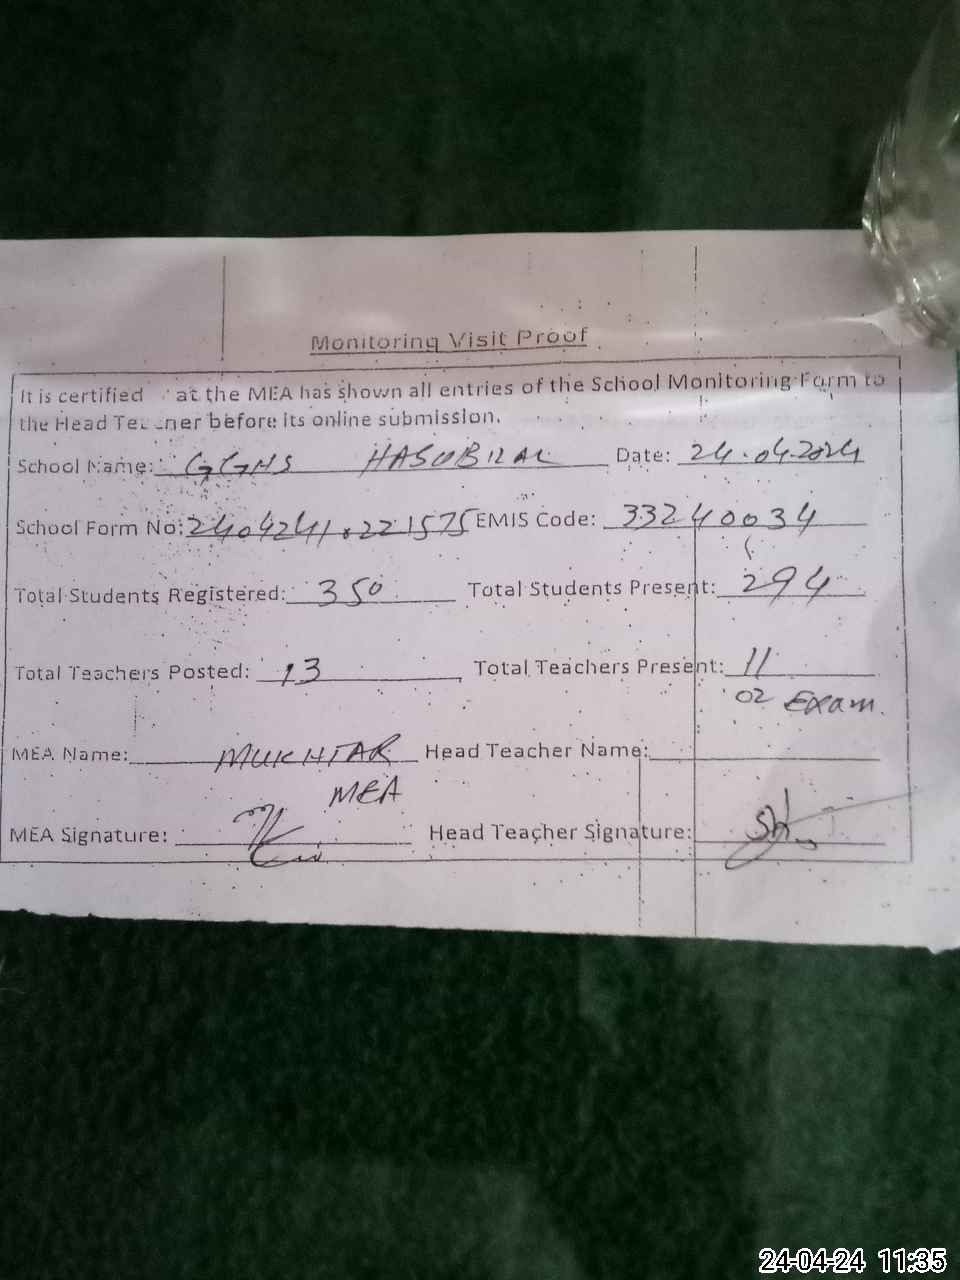 Monitoring Visit Proof
It is certified at the MEA has shown all entries of the School Monitoring Form to
the Head Teacher before its online submission.
School Name: GGHS HASUBILAL Date: 24.04.2024
School Form No: EMIS Code: 33240034
Total Students Registered: 350 Total Students Present: 294
Total Teachers Posted: 13 Total Teachers Present: 11
02 Exam.
MEA Name: MUKHTAR Head Teacher Name:
MEA
MEA Signature: Head Teacher Signature:
24-04-24 11:35